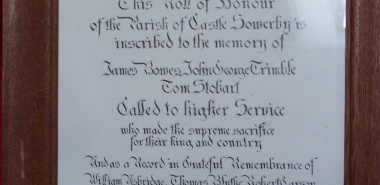 This Roll of Honour
of the Parish of Castle Sowerby is
inscribed to the memory of
James Bowes, John George Trimble
Tom Stobart
Called to higher Service
who made the supreme sacrifice
for their king and country
And as a Record in Grateful Remembrance of
William Isbridge, Thomas Blythe, Robert Carson